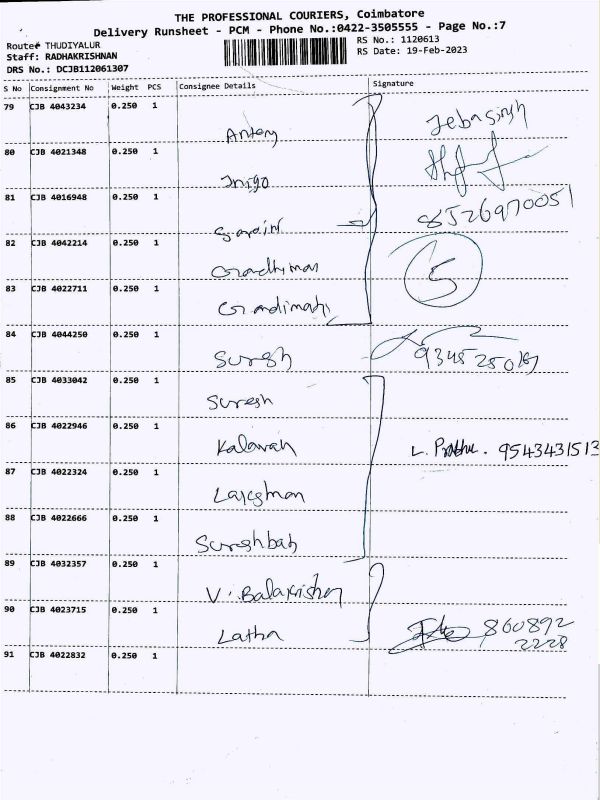 THE PROFESSIONAL COURIERS, Coimbatore
Delivery Runsheet - PCM - Phone No.:0422-3505555 - Page No.:7
Route# THUDIYALUR
Staff: RADHAKRISHNAN
DRS No.: DCJB112061307
RS No.: 1120613
RS Date: 19-Feb-2023
S No Consignment No Weight PCS Consignee Details Signature
79 CJB 4043234 0.250 1 Antony Jebasingh
80 CJB 4021348 0.250 1 Inigo
81 CJB 4016948 0.250 1 8526970051
82 CJB 4042214 0.250 1 5
83 CJB 4022711 0.250 1
84 CJB 4044250 0.250 1 Suresh
85 CJB 4033042 0.250 1 Suresh
86 CJB 4022946 0.250 1 L. Prabhu. 9543431513
87 CJB 4022324 0.250 1
88 CJB 4022666 0.250 1
89 CJB 4032357 0.250 1 V. Balakrishna
90 CJB 4023715 0.250 1 Latha 860892
2228
91 CJB 4022832 0.250 1